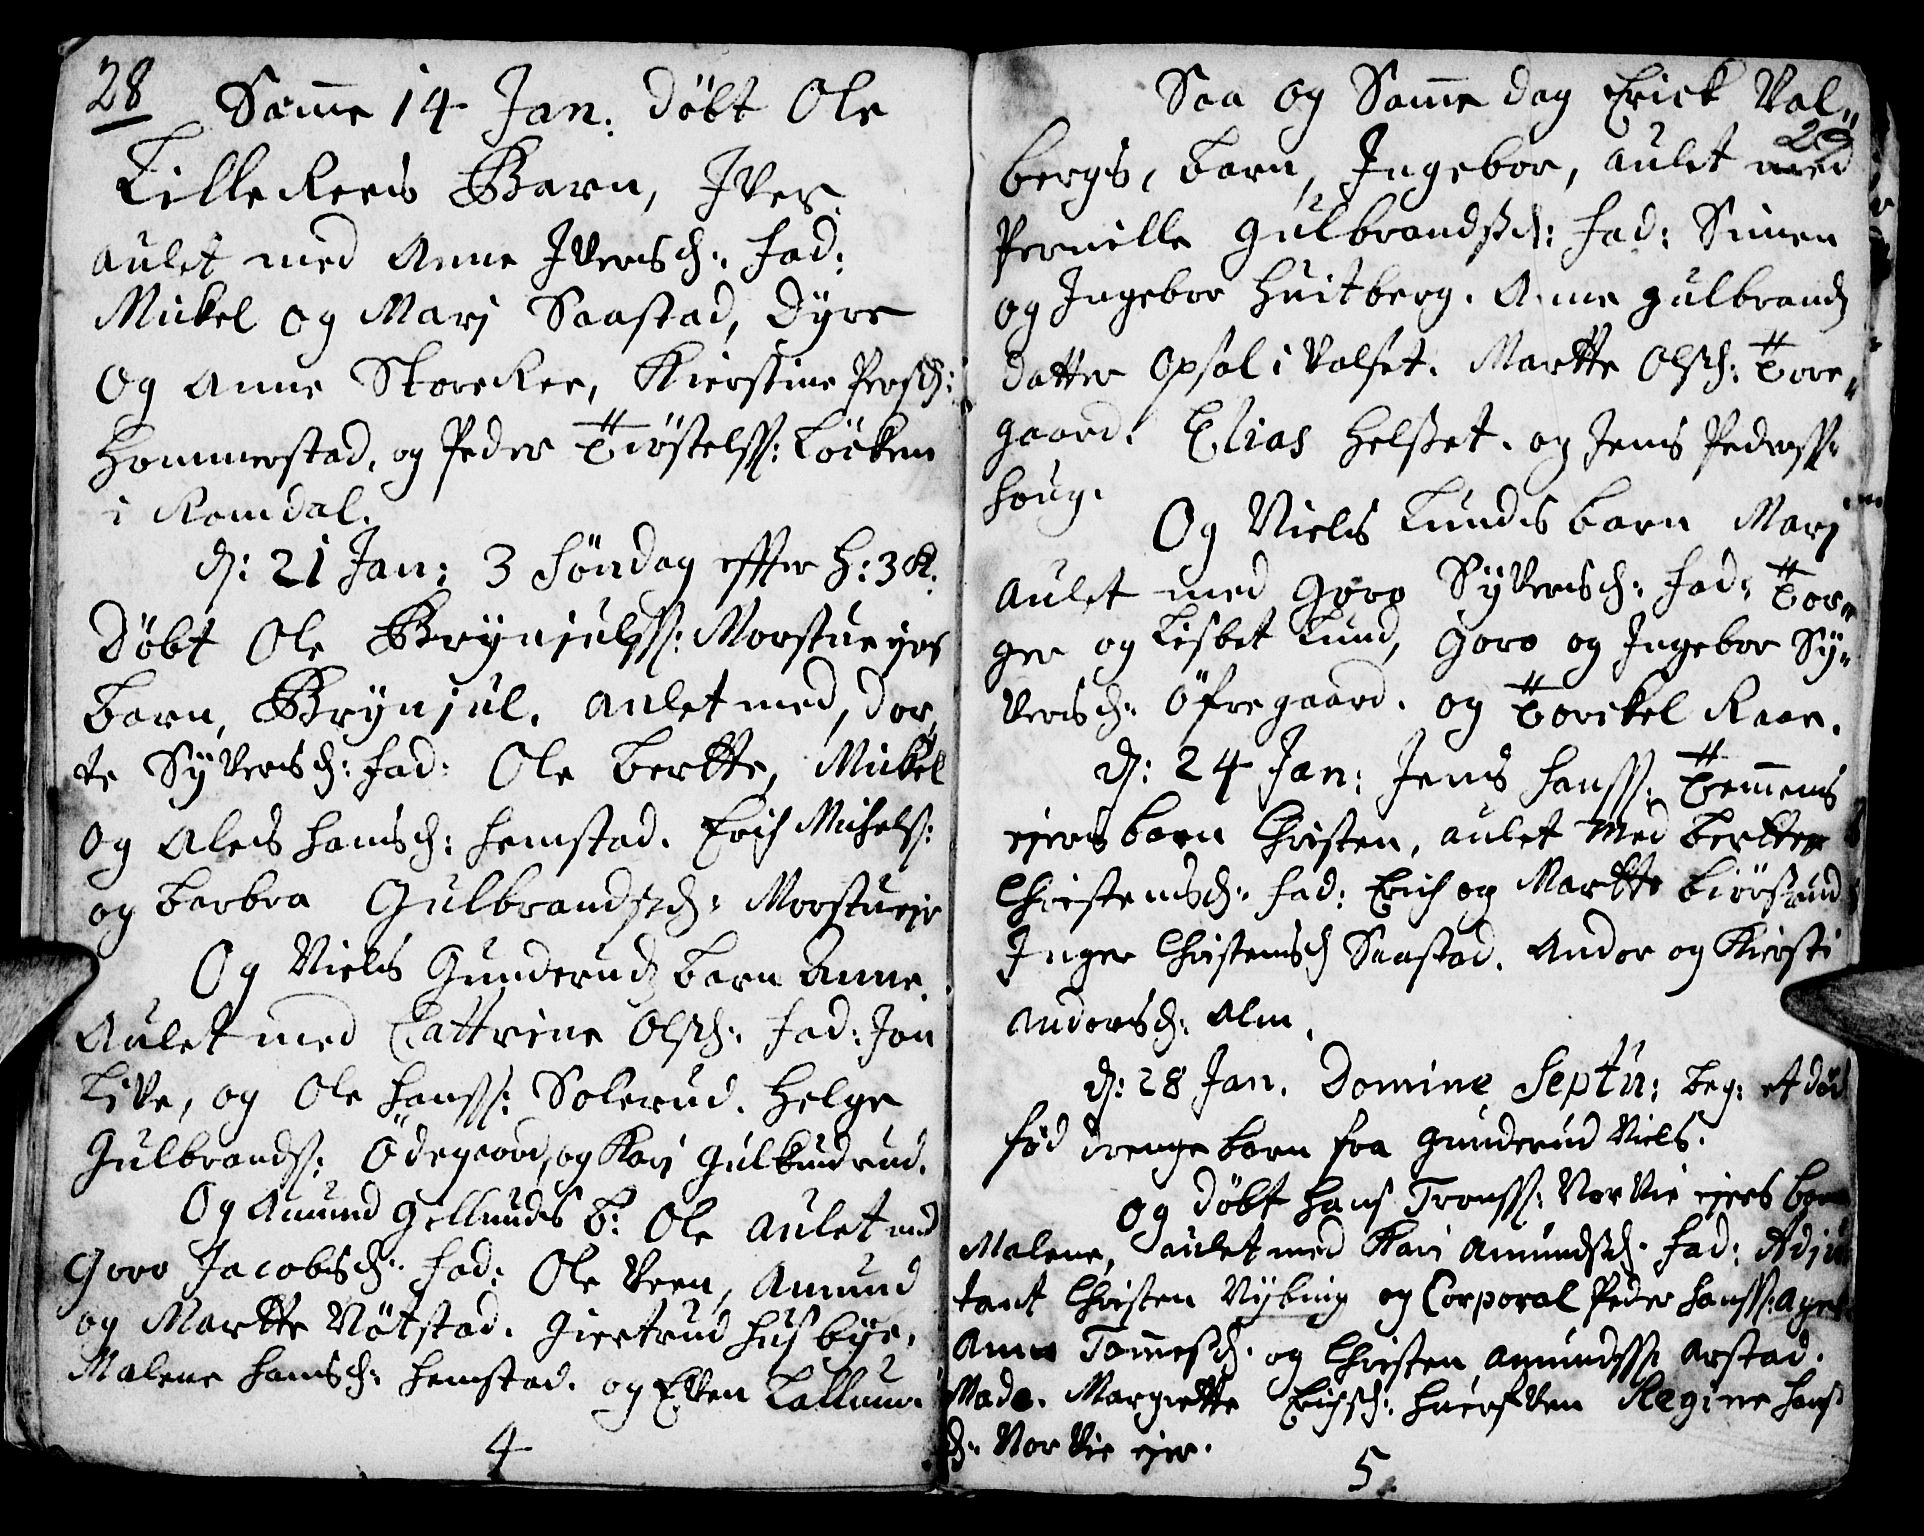 28
Samme 14 Jan: döbt Ole
Lilleherres Barn, Iver.
aulet med Anne Ivers D: Fad:
Mickel og Mari Saastad, Dyre
og Anne Storeree, Kierstine Pers D:
Hommerstad, og Peder Tiöstelss: Löcken
i Romdal.
D: 21 Jan: 3 Söndag effter H: 3 K.
döbt Ole Brynjulss: Morstue ejes
barn, Brynjul. aulet med, Dor,,
te Syvers D: Fad: Ole Bertte, Mickel
og Ales Hans D: Hemstad. Erich Michels:
og Barbra Gulbrands D: Morstueeje
Og Niels Gunderuds barn Anne.
Aulet med Cattrine Ols D: Fad: Jon
Live, og Ole Hanss: Solerud. Helge
Gulbrands: Ödegaard, og Kari
Og Amund Gellunds B: Ole aulet med
Goro Jacobs D: Fad: Ole Veen, Amund
og Martte Nötstad. Giertrud Husbye.
Malene Hans D: Hemstad. og Even Lallum.
4
29
Saa og Samme dag Erick Val,,
bergs, barn, Ingebor, aulet med
Pernille Gulbrands D: Fad: Simen
og Ingebor Huitberg. Anne Gulbrands
datter Opsal i Valset. Martte Ols D: Tore,,
gaard. Elias Helset. og Jens Pederss:
Houg.
Og Niels Lunds barn Mari
aulet med Goro Syvers D: Fad: Tor,,
ger og Lisbet Lund, Goro og Ingebor Sy,,
vers D: Öfregaard. og Torckel Raae.
D: 24 Jan: Jens Hanss: Temmens
ejers barn Christen, aulet med Berthe
Christens D: Fad: Erich og Martte Biörserud
Inger Christens D Saastad. Andor og Kiersti
Andors D: Alm.
D: 28 Jan. Domine Septu: Beg: et död
föd drenge barn fra Gunderud Niels.
og döbt Hans Tronss: Norvie ejers barn
Malene, aulet med Kari Amunds D: Fad: Adju
tant Christen Nybing og Corporal Peder Hanss:
Anne Tommes D: og Christen Amundss: Arstad.
Mad. Margrette Erichs D: Regine Hans
D: Norvie ejer.
5